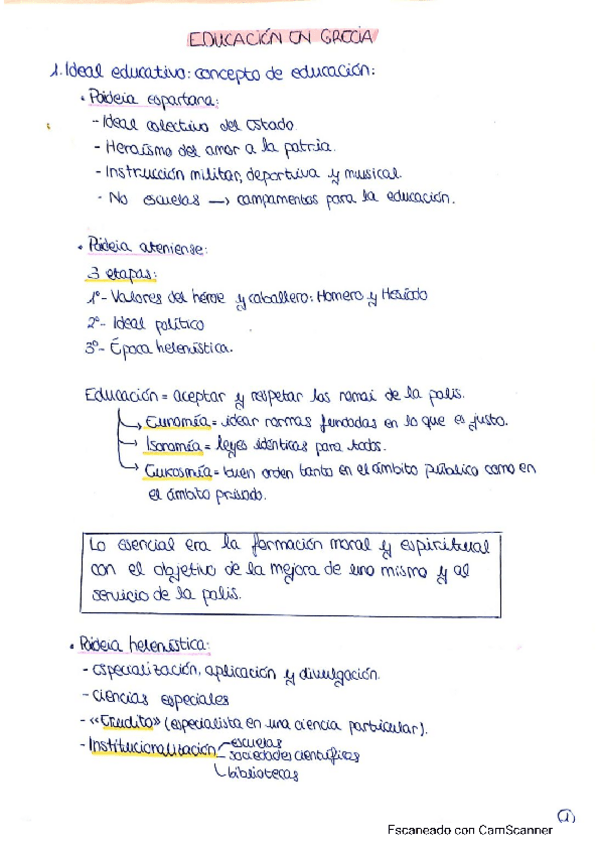 EDUCACIÓN EN GRECIA
1. Ideal educativo: concepto de educación:
• Paideia espartana:
- Ideal colectivo del Estado.
- Heroísmo del amor a la patria.
- Instrucción militar, deportiva y musical.
- No escuelas → campamentos para la educación.
• Paideia ateniense:
3 etapas:
1º- Valores del héroe y caballero: Homero y Hesíodo
2º- Ideal político
3º- Época helenística.
Educación = aceptar y respetar las nomai de la polis.
→ Eunomía = idear normas fundadas en lo que es justo.
→ Isonomía = leyes idénticas para todos.
→ Eukosmía = buen orden tanto en el ámbito público como en
el ámbito privado.
Lo esencial era la formación moral y espiritual
con el objetivo de la mejora de uno mismo y al
servicio de la polis.
• Paideia helenística:
- especialización, aplicación y divulgación.
- ciencias especiales
- «Erudito» (especialista en una ciencia particular).
- Institucionalización escuelas
sociedades científicas
bibliotecas
1
Escaneado con CamScanner